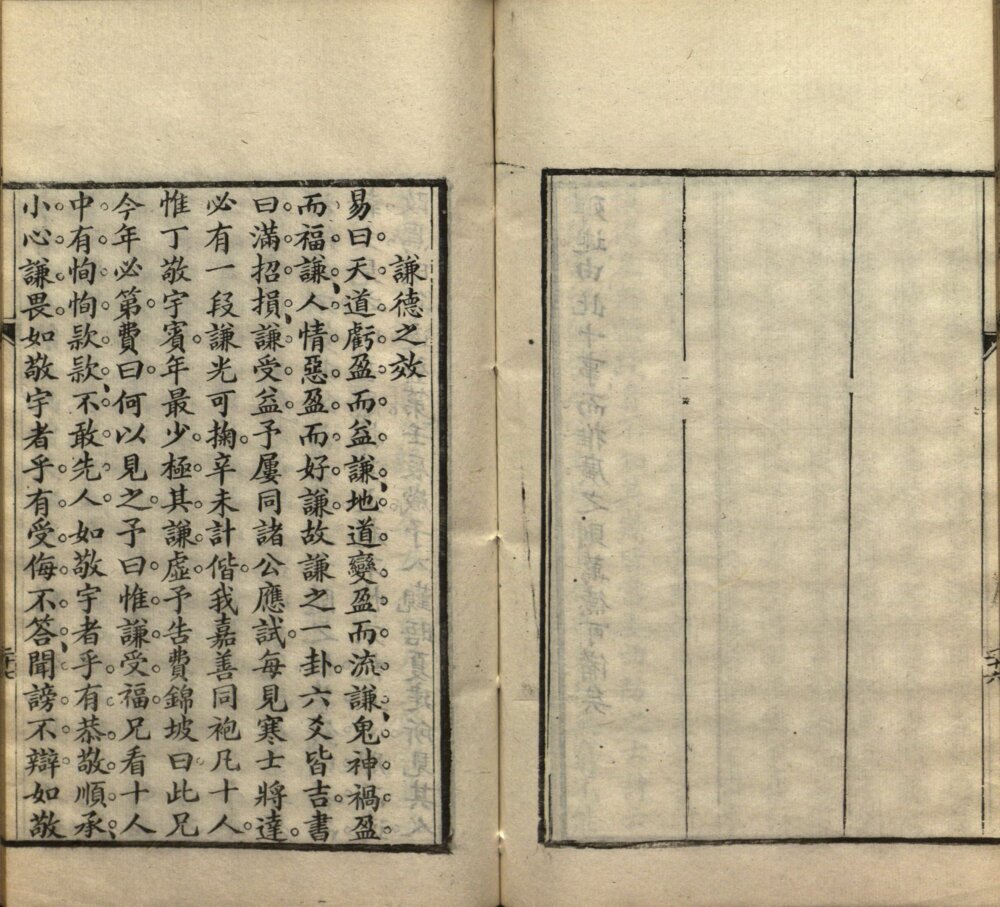 二十六
謙德之效
易曰天道虧盈而益謙地道變盈而流謙鬼神禍盈
而福謙人情惡盈而好謙故謙之一卦六爻皆吉書
曰滿招損謙受益予屢同諸公應試每見寒士將達
必有一段謙光可掬辛未計偕我嘉善同袍凡十人
惟丁敬宇賓年最少極其謙虛予告費錦坡曰此兄
今年必第費曰何以見之予曰惟謙受福兄看十人
中有恂恂款款不敢先人如敬宇者乎有恭敬順承
小心謙畏如敬宇者乎有受侮不答聞謗不辯如敬